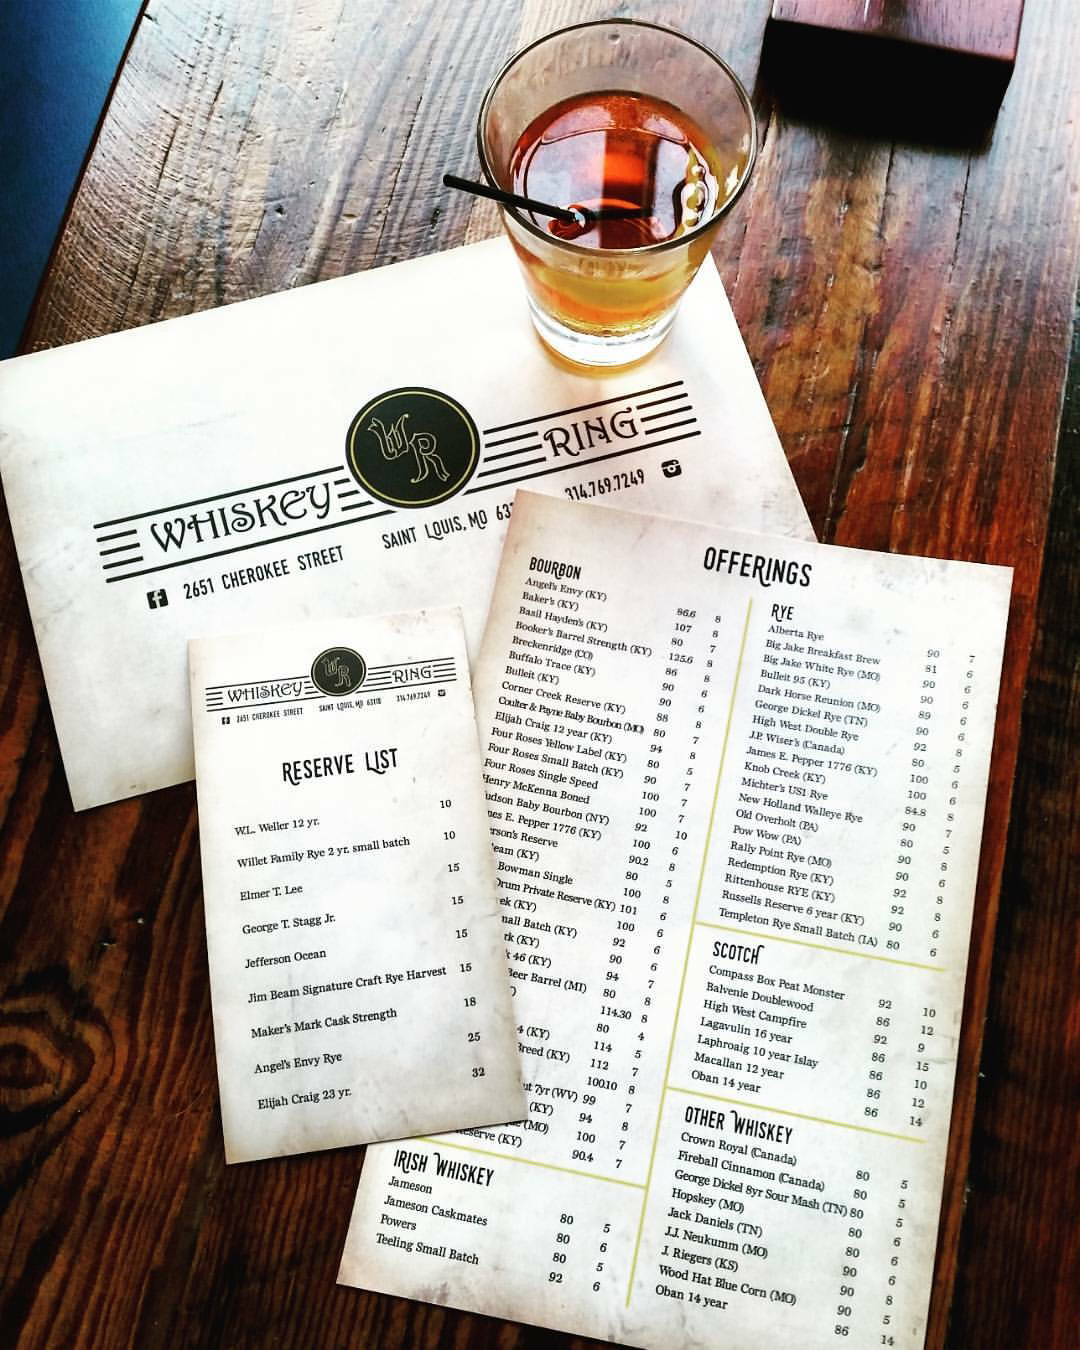 WHISKEY WR RING
2651 CHEROKEE STREET SAINT LOUIS, MO 314.769.7249
WHISKEY WR RING
2651 CHEROKEE STREET SAINT LOUIS, MO 63118 314.769.7249
RESERVE LIST
W.L. Weller 12 yr. 10
Willet Family Rye 2 yr. small batch 10
Elmer T. Lee 15
George T. Stagg Jr. 15
Jefferson Ocean 15
Jim Beam Signature Craft Rye Harvest 15
Maker's Mark Cask Strength 18
Angel's Envy Rye 25
Elijah Craig 23 yr. 32
OFFERINGS
BOURBON
Angel's Envy (KY) 86.6 8
Baker's (KY) 107 8
Basil Hayden's (KY) 80 7
Booker's Barrel Strength (KY) 125.6 8
Breckenridge (CO) 86 8
Buffalo Trace (KY) 90 6
Bulleit (KY) 90 6
Corner Creek Reserve (KY) 88 8
Coulter & Payne Baby Bourbon (MO) 80 7
Elijah Craig 12 year (KY) 94 8
Four Roses Yellow Label (KY) 80 5
Four Roses Small Batch (KY) 90 7
Four Roses Single Speed 100 7
Henry McKenna Boned 100 7
Hudson Baby Bourbon (NY) 92 10
E. Pepper 1776 (KY) 100 6
Reserve 90.2 8
(KY) 80 5
Bowman Single 100 8
Drum Private Reserve (KY) 101 6
(KY) 100 6
Batch (KY) 92 6
(KY) 90 6
46 (KY) 94 7
Beer Barrel (MI) 80 8
114.30 8
80 4
4 (KY) 114 5
Breed (KY) 112 7
100.10 8
7yr (WV) 99 7
(KY) 94 8
(MO) 100 7
Reserve (KY) 90.4 7
IRISH WHISKEY
Jameson 80 5
Jameson Caskmates 80 6
Powers 80 5
Teeling Small Batch 92 6
RYE
Alberta Rye 90 7
Big Jake Breakfast Brew 81 6
Big Jake White Rye (MO) 90 6
Bulleit 95 (KY) 90 6
Dark Horse Reunion (MO) 89 6
George Dickel Rye (TN) 90 6
High West Double Rye 92 8
J.P. Wiser's (Canada) 80 5
James E. Pepper 1776 (KY) 100 6
Knob Creek (KY) 100 6
Michter's US1 Rye 84.8 8
New Holland Walleye Rye 90 7
Old Overholt (PA) 80 5
Pow Wow (PA) 90 8
Rally Point Rye (MO) 90 6
Redemption Rye (KY) 92 8
Rittenhouse RYE (KY) 92 8
Russells Reserve 6 year (KY) 90 6
Templeton Rye Small Batch (IA) 80 6
SCOTCH
Compass Box Peat Monster 92 10
Balvenie Doublewood 86 12
High West Campfire 92 9
Lagavulin 16 year 86 15
Laphroaig 10 year Islay 86 10
Macallan 12 year 86 12
Oban 14 year 86 14
OTHER WHISKEY
Crown Royal (Canada) 80 5
Fireball Cinnamon (Canada) 80 5
George Dickel 8yr Sour Mash (TN) 80 5
Hopskey (MO) 80 6
Jack Daniels (TN) 80 6
J.J. Neukumm (MO) 90 6
J. Riegers (KS) 90 8
Wood Hat Blue Corn (MO) 90 5
Oban 14 year 86 14